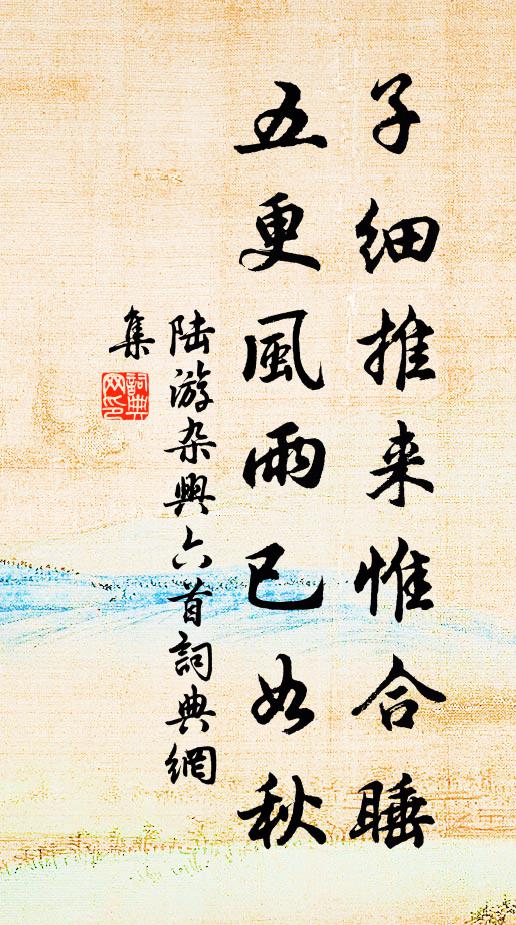 子细推来惟合睡
五更風雨已如秋
陆游杂興六首詞典網
集
詞典
网印